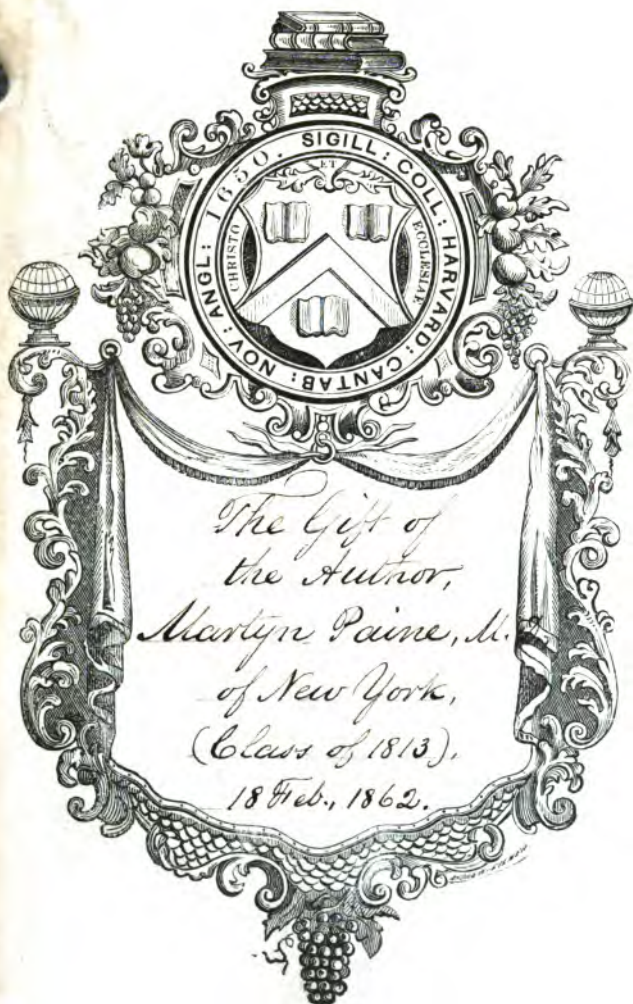 SIGILL: COLL: HARVARD: CANTAB: NOV: ANGL: 1650.
CHRISTO
ET
ECCLESIAE
The Gift of
the Author,
Martyn Paine, M.
of New York,
(Class of 1813).
18 Feb., 1862.